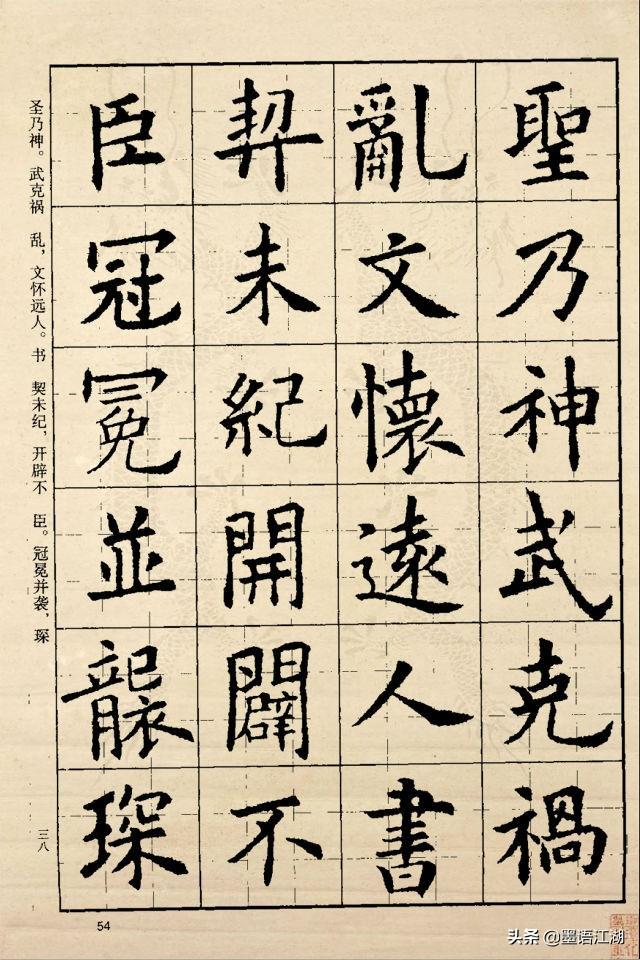 聖乃神武克禍
亂文懷遠人書
契未紀開闢不
臣冠冕並襲琛
圣乃神。武克祸 乱，文怀远人。书 契未纪，开辟不 臣。冠冕并袭，琛
三八
54
头条 @墨语江湖